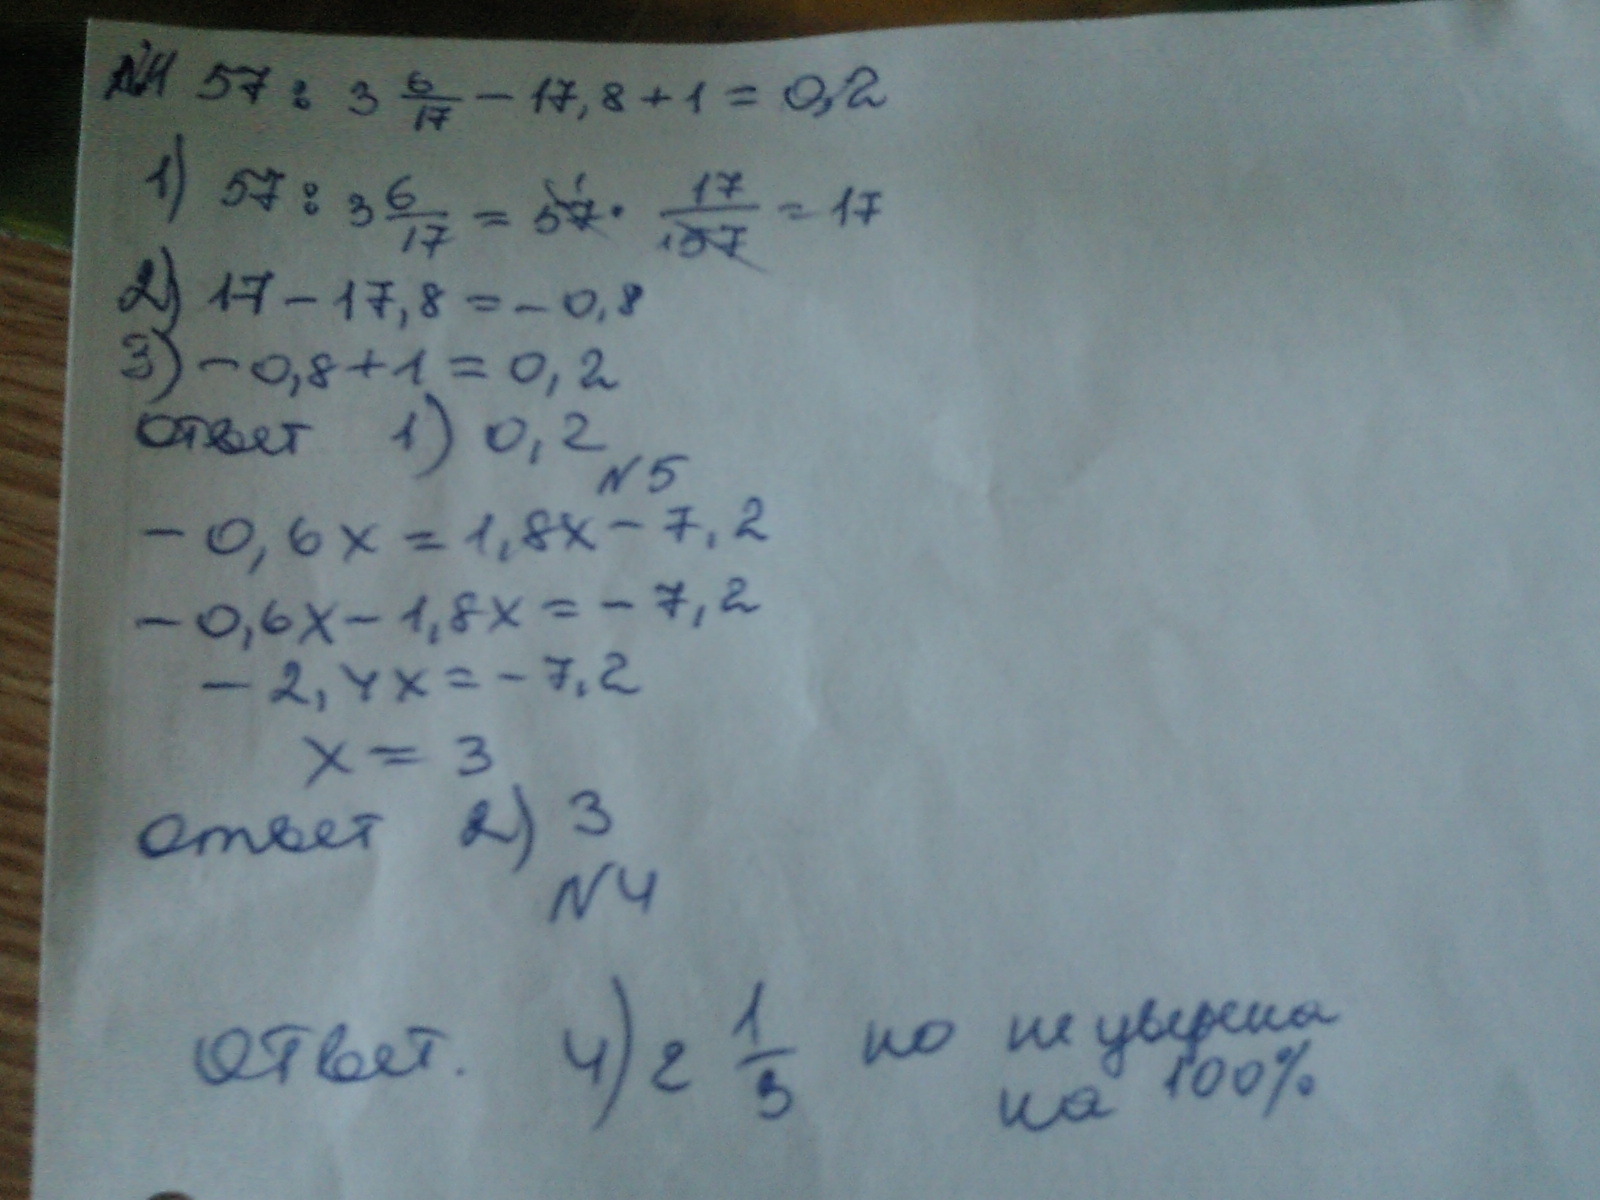 №1 57 : 3 6/17 - 17,8 + 1 = 0,2
1) 57 : 3 6/17 = 57 · 17/57 = 17
2) 17 - 17,8 = - 0,8
3) - 0,8 + 1 = 0,2
ответ 1) 0,2
N5
- 0,6x = 1,8x - 7,2
- 0,6x - 1,8x = - 7,2
- 2,4x = - 7,2
x = 3
ответ 2) 3
N4
Ответ. 4) 2 1/3 но не уверена
на 100%